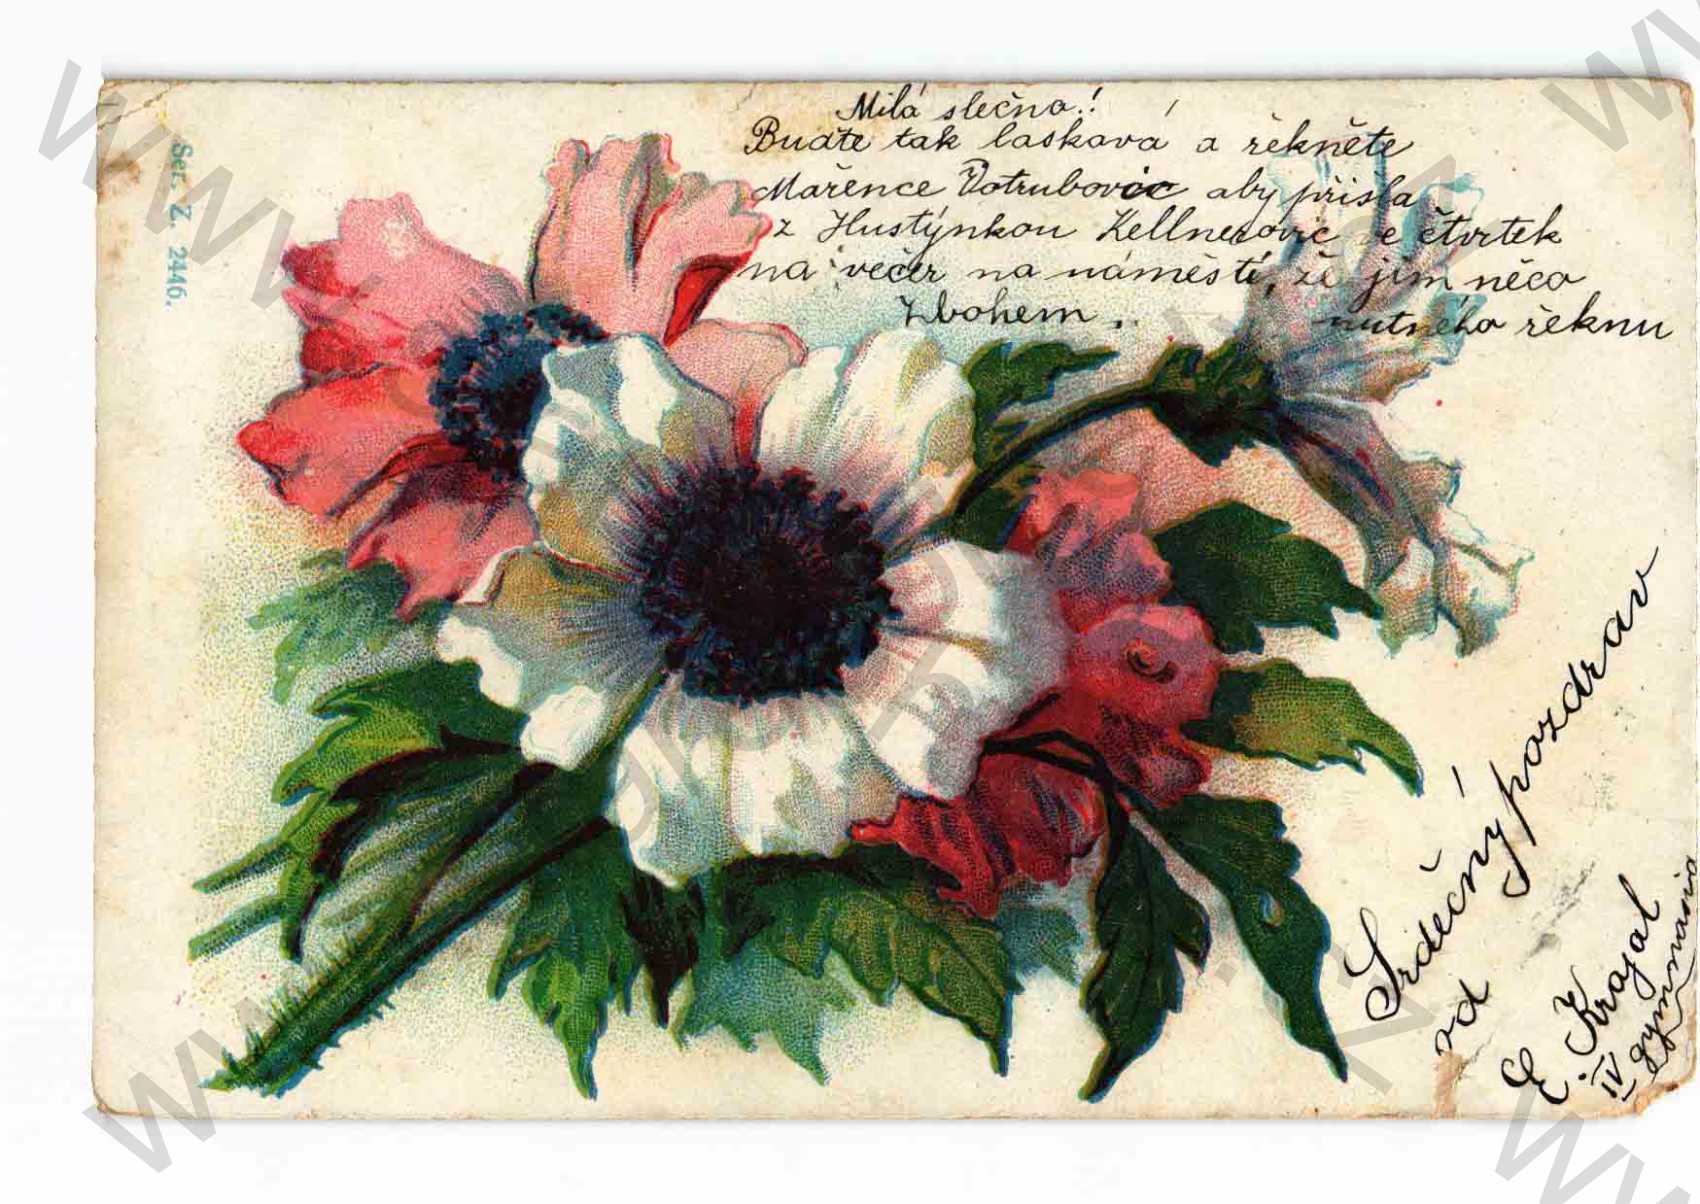 Milá slečno!
Buďte tak laskavá a řekněte
Mařence Votrubovic aby přišla
z Hustýnkou Kellnerovic ve čtvrtek
na večer na náměstí, že jim něco
Zbohem.. nutného řeknu
Srdečný pozdrav
od
E. Krajal
IV gymnasia
Ser. Z. 2446.